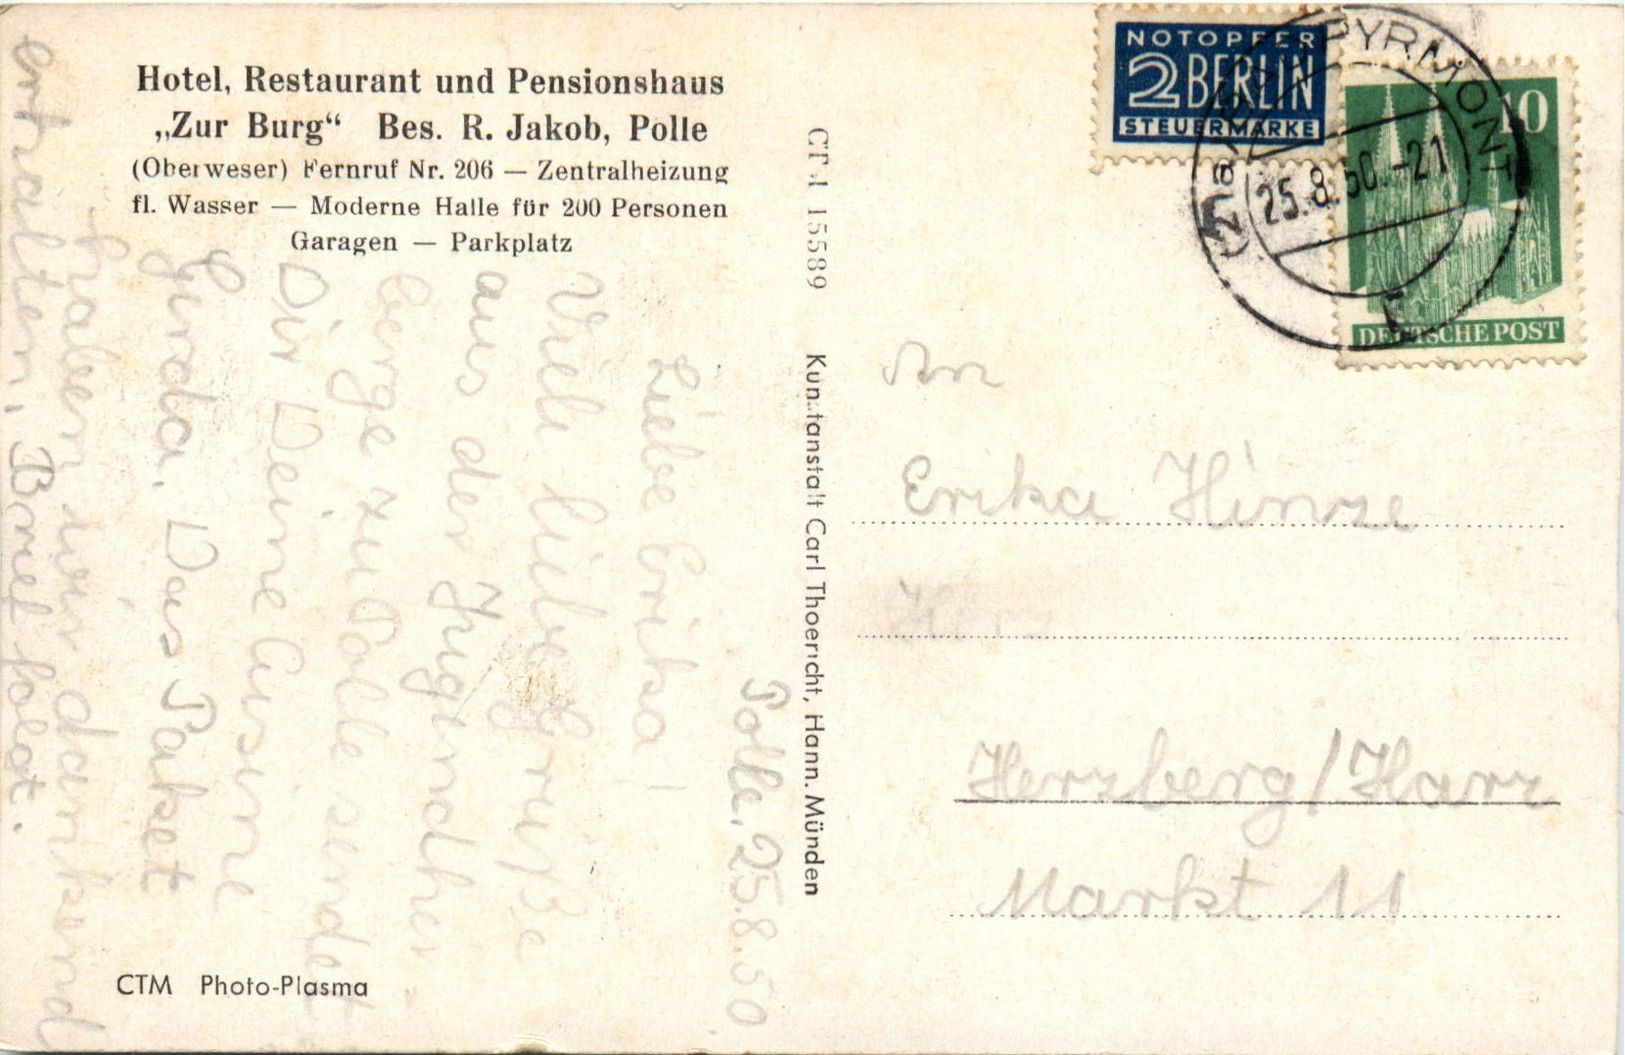 Hotel, Restaurant und Pensionshaus
„Zur Burg“ Bes. R. Jakob, Polle
(Oberweser) Fernruf Nr. 206 — Zentralheizung
fl. Wasser — Moderne Halle für 200 Personen
Garagen — Parkplatz
Polle, 25.8.50
Liebe Erika!
Viele liebe Grüße
aus der Jugendher-
berge zu Polle sendet
Dir Deine Cusine
Das Paket
haben wir dankend
erhalten, Brief folgt.
CTM Photo-Plasma
CTM 15589 Kunstanstalt Carl Thoericht, Hann. Münden
NOTOPFER
2 BERLIN
STEUERMARKE
PYRMONT
25.8.50.-21
10
DEUTSCHE POST
An
Erika Hinze
Herzberg/Harz
Markt 11